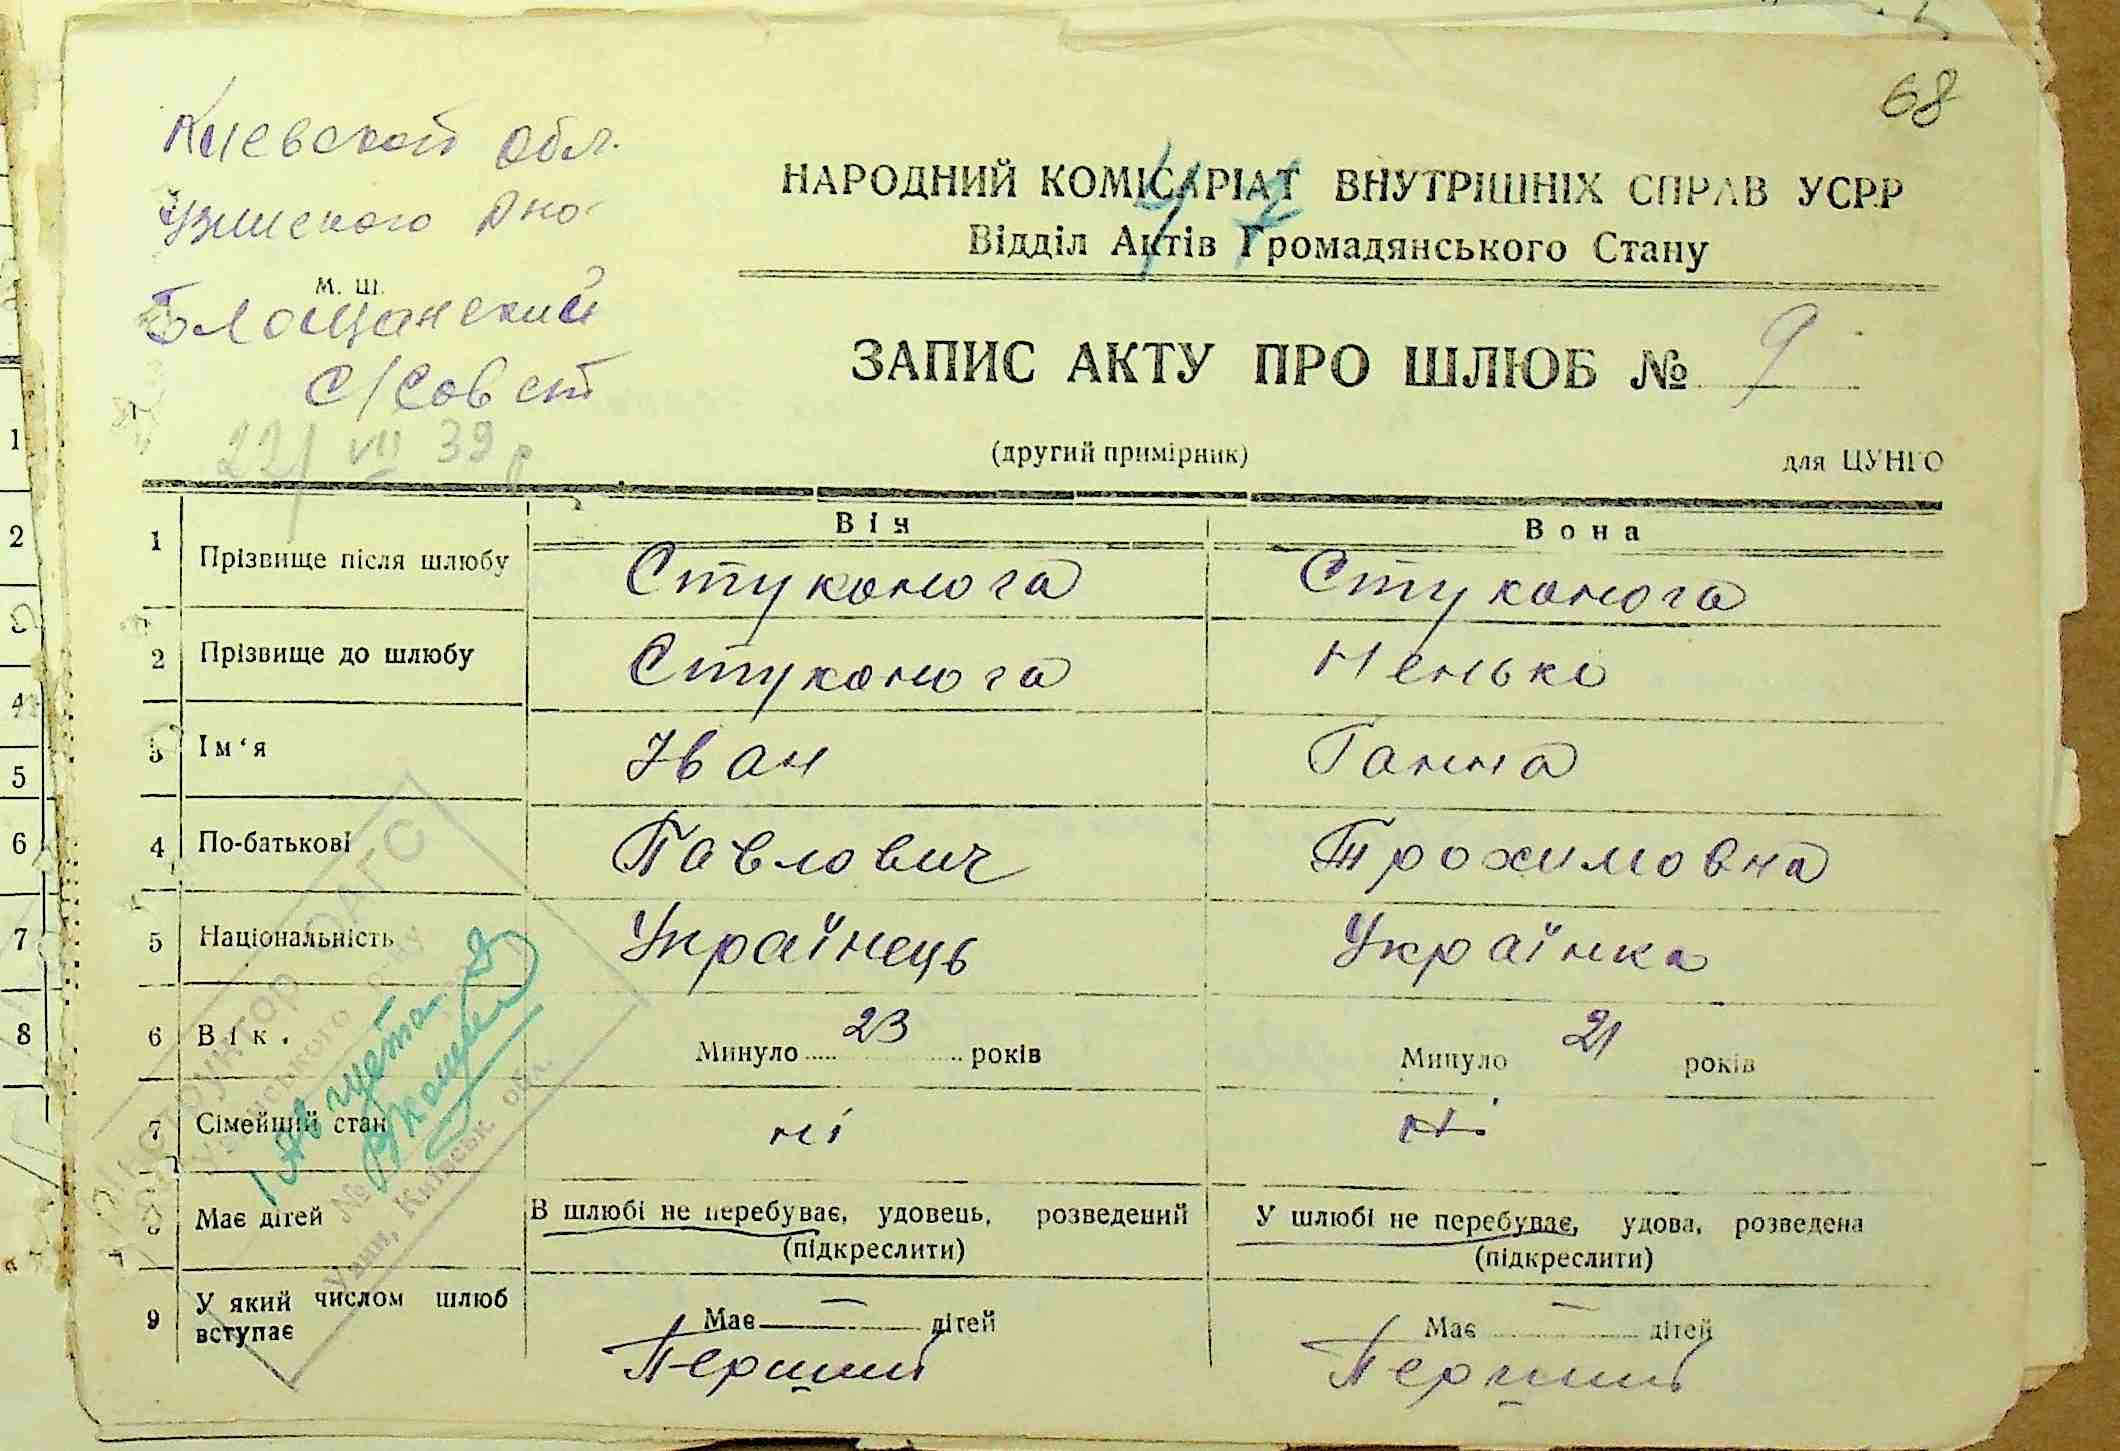 68
Киевской обл.
Узинского р-но
м. ш.
Блощанский
с/совет
22/VII 39 р
НАРОДНИЙ КОМІСАРІАТ ВНУТРІШНІХ СПРАВ УСРР
Відділ Актів Громадянського Стану
ЗАПИС АКТУ ПРО ШЛЮБ № 9
(другий примірник) для ЦУНГО
Він Вона
1 Прізвище після шлюбу Стуконога Стуконога
2 Прізвище до шлюбу Стуконога Ненько
3 Ім'я Іван Ганна
4 По-батькові Павлович Трохимовна
5 Національність Українець Українка
6 Вік. Минуло 23 років Минуло 21 років
7 Сімейний стан ні ні
8 Має дітей В шлюбі не перебуває, удовець, розведений У шлюбі не перебуває, удова, розведена
(підкреслити) (підкреслити)
9 У який числом шлюб вступає Має — дітей Має — дітей
Перший Перший
Інструктор ЮАГС
Узинського р-ну
№
Узин, Київськ. обл.